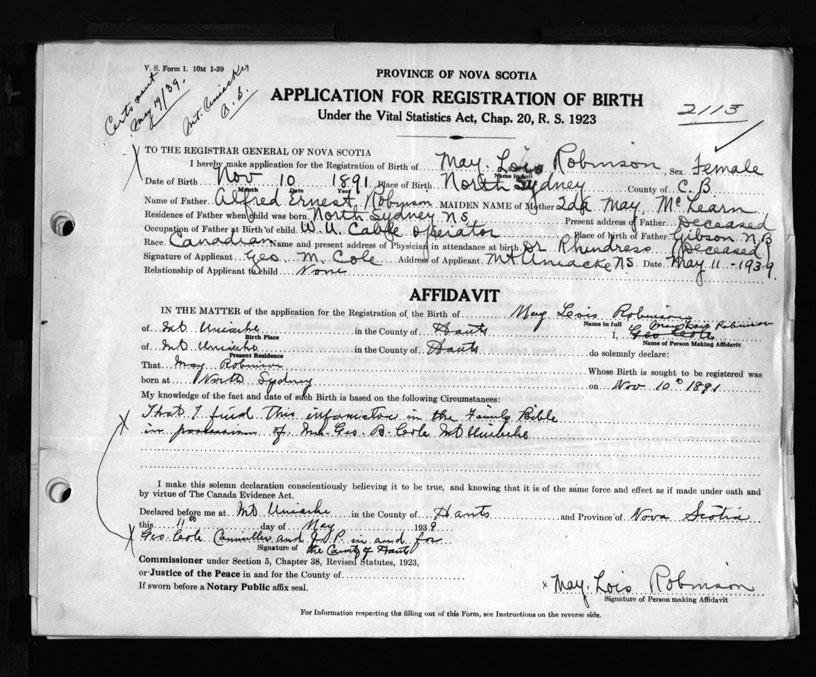 V. S. Form 1. 10M 1-39
Certs sent
May 17/39.
Mt. Uniacke
PROVINCE OF NOVA SCOTIA
APPLICATION FOR REGISTRATION OF BIRTH
2113
Under the Vital Statistics Act, Chap. 20, R. S. 1923
TO THE REGISTRAR GENERAL OF NOVA SCOTIA
I hereby make application for the Registration of Birth of May. Lois Robinson Sex Female
Name in full
Date of Birth Nov 10 1891 Place of Birth North Sydney County of C. B
Month Date Year
Name of Father Alfred Ernest Robinson MAIDEN NAME of Mother Ida May. McLearn
Residence of Father when child was born North Sydney NS Present address of Father Deceased
Occupation of Father at Birth of child. W. U. Cable operator Place of birth of Father Gibson N.B
Race. Canadian Name and present address of Physician in attendance at birth Dr Rhindress (Deceased)
Signature of Applicant Geo. M. Cole Address of Applicant Mt Uniacke NS Date May 11 - 1939.
Relationship of Applicant to child None
AFFIDAVIT
IN THE MATTER of the application for the Registration of the Birth of May Lois Robinson
Name in full
of Mt Uniacke in the County of Hants I, May Lois Robinson
Birth Place
Name of Person Making Affidavit
of Mt Uniacke in the County of Hants do solemnly declare:
Present Residence
That May Robinson Whose Birth is sought to be registered was
born at North Sydney on Nov. 10th 1891
My knowledge of the fact and date of such Birth is based on the following Circumstances:
That I find this information in the Family Bible
in possession of Mrs. Geo. B. Cole Mt Uniacke
I make this solemn declaration conscientiously believing it to be true, and knowing that it is of the same force and effect as if made under oath and
by virtue of The Canada Evidence Act.
Declared before me at Mt Uniacke in the County of Hants and Province of Nova Scotia
this 11th day of May 1939
Geo. Cole Councillor and J. P. in and for
Signature of the County of Hants
Commissioner under Section 5, Chapter 38, Revised Statutes, 1923,
or Justice of the Peace in and for the County of
If sworn before a Notary Public affix seal.
x May. Lois Robinson
Signature of Person making Affidavit
For Information respecting the filling out of this Form, see Instructions on the reverse side.